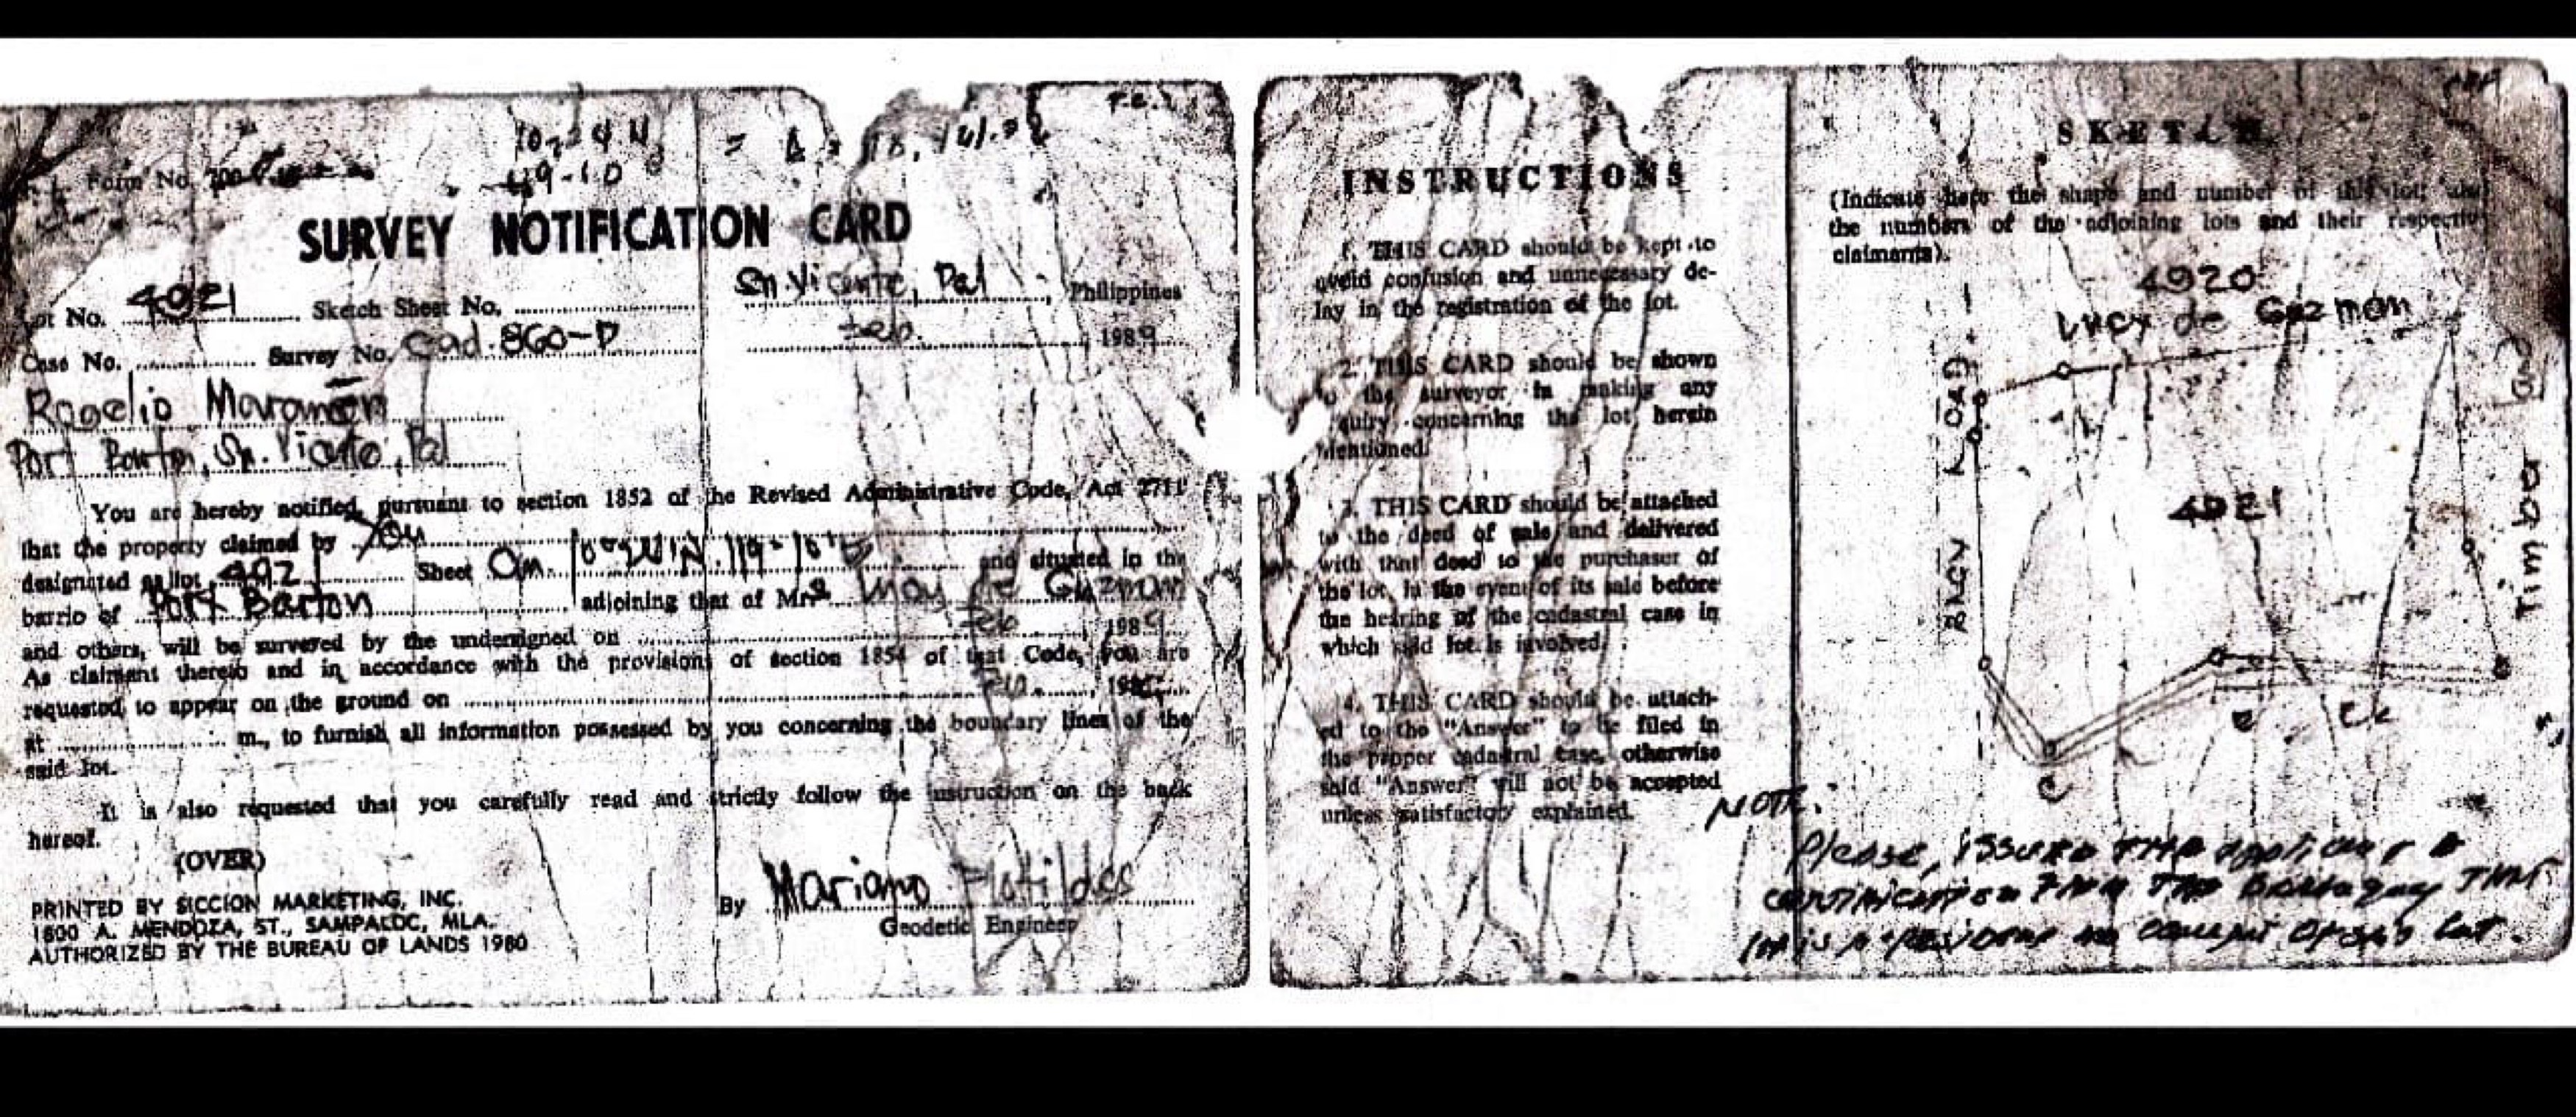 Form No. 700
= A =
SURVEY NOTIFICATION CARD
Sn. Vicente, Pal, Philippines
Lot No. 4921 Sketch Sheet No.
Feb. 1989
Case No. Survey No. Cad. 860-D
Rogelio
Port Barton, Sn. Vicente, Pal
You are hereby notified, pursuant to section 1852 of the Revised Administrative Code, Act 2711
that the property claimed by you
designated as lot 4921 Sheet and situated in the
barrio of Port Barton adjoining that of Mrs. de Guzman
and others, will be surveyed by the undersigned on Feb 1989
As claimant thereto and in accordance with the provisions of section 1854 of that Code, you are
requested to appear on the ground on
at m., to furnish all information possessed by you concerning the boundary lines of the
said lot.
It is also requested that you carefully read and strictly follow the instruction on the back
hereof.
(OVER)
PRINTED BY SICCION MARKETING, INC.
1600 A. MENDOZA, ST., SAMPALOC, MLA.
AUTHORIZED BY THE BUREAU OF LANDS 1980
By Mariano
Geodetic Engineer
INSTRUCTIONS
1. THIS CARD should be kept to
avoid confusion and unnecessary de-
lay in the registration of the lot.
2. THIS CARD should be shown
to the surveyor in making any
quiry concerning the lot herein
mentioned.
3. THIS CARD should be attached
to the deed of sale and delivered
with that deed to the purchaser of
the lot, in the event of its sale before
the hearing of the cadastral case in
which said lot is involved.
4. THIS CARD should be attach-
ed to the "Answer" to be filed in
the proper cadastral case, otherwise
said "Answer" will not be accepted
unless satisfactory explained.
SKETCH
(Indicate here the shape and number of this lot; also
the numbers of the adjoining lots and their respective
claimants).
4920
Lucy de Guzman
BRGY ROAD
4921
Timber
C
NOTE:
Please, issue the applicant a
certification from the Barangay that